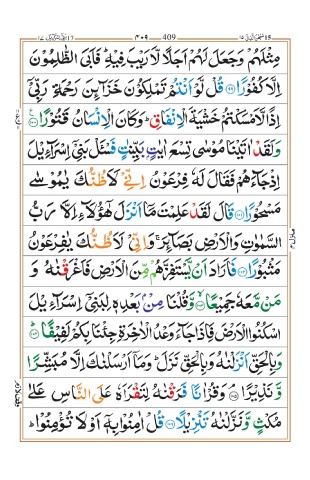 سبحن الذی ١٥ ٤٠٩ 409 بنی اسرآءیل ١٧
مِثْلَهُمْ وَجَعَلَ لَهُمْ اَجَلًا لَّا رَیْبَ فِیْهِ ؕ فَاَبَی الظّٰلِمُوْنَ
اِلَّا كُفُوْرًا ۝۹۹ قُلْ لَّوْ اَنْتُمْ تَمْلِكُوْنَ خَزَآىِٕنَ رَحْمَةِ رَبِّیْۤ
اِذًا لَّاَمْسَكْتُمْ خَشْیَةَ الْاِنْفَاقِ ؕ وَكَانَ الْاِنْسَانُ قَتُوْرًا ۝۱۰۰
وَلَقَدْ اٰتَیْنَا مُوْسٰی تِسْعَ اٰیٰتٍۭ بَیِّنٰتٍ فَسْـَٔلْ بَنِیْۤ اِسْرَآءِیْلَ
اِذْ جَآءَهُمْ فَقَالَ لَهٗ فِرْعَوْنُ اِنِّیْ لَاَظُنُّكَ یٰمُوْسٰی
مَسْحُوْرًا ۝۱۰۱ قَالَ لَقَدْ عَلِمْتَ مَاۤ اَنْزَلَ هٰۤؤُلَآءِ اِلَّا رَبُّ
السَّمٰوٰتِ وَالْاَرْضِ بَصَآىِٕرَ ۚ وَاِنِّیْ لَاَظُنُّكَ یٰفِرْعَوْنُ
مَثْبُوْرًا ۝۱۰۲ فَاَرَادَ اَنْ یَّسْتَفِزَّهُمْ مِّنَ الْاَرْضِ فَاَغْرَقْنٰهُ وَ
مَنْ مَّعَهٗ جَمِیْعًا ۝۱۰۳ وَّقُلْنَا مِنْۢ بَعْدِهٖ لِبَنِیْۤ اِسْرَآءِیْلَ
اسْكُنُوا الْاَرْضَ فَاِذَا جَآءَ وَعْدُ الْاٰخِرَةِ جِئْنَا بِكُمْ لَفِیْفًا ۝۱۰۴
وَبِالْحَقِّ اَنْزَلْنٰهُ وَبِالْحَقِّ نَزَلَ ؕ وَمَاۤ اَرْسَلْنٰكَ اِلَّا مُبَشِّرًا
وَّنَذِیْرًا ۝۱۰۵ وَقُرْاٰنًا فَرَقْنٰهُ لِتَقْرَاَهٗ عَلَی النَّاسِ عَلٰی
مُكْثٍ وَّنَزَّلْنٰهُ تَنْزِیْلًا ۝۱۰۶ قُلْ اٰمِنُوْا بِهٖۤ اَوْ لَا تُؤْمِنُوْا ؕ